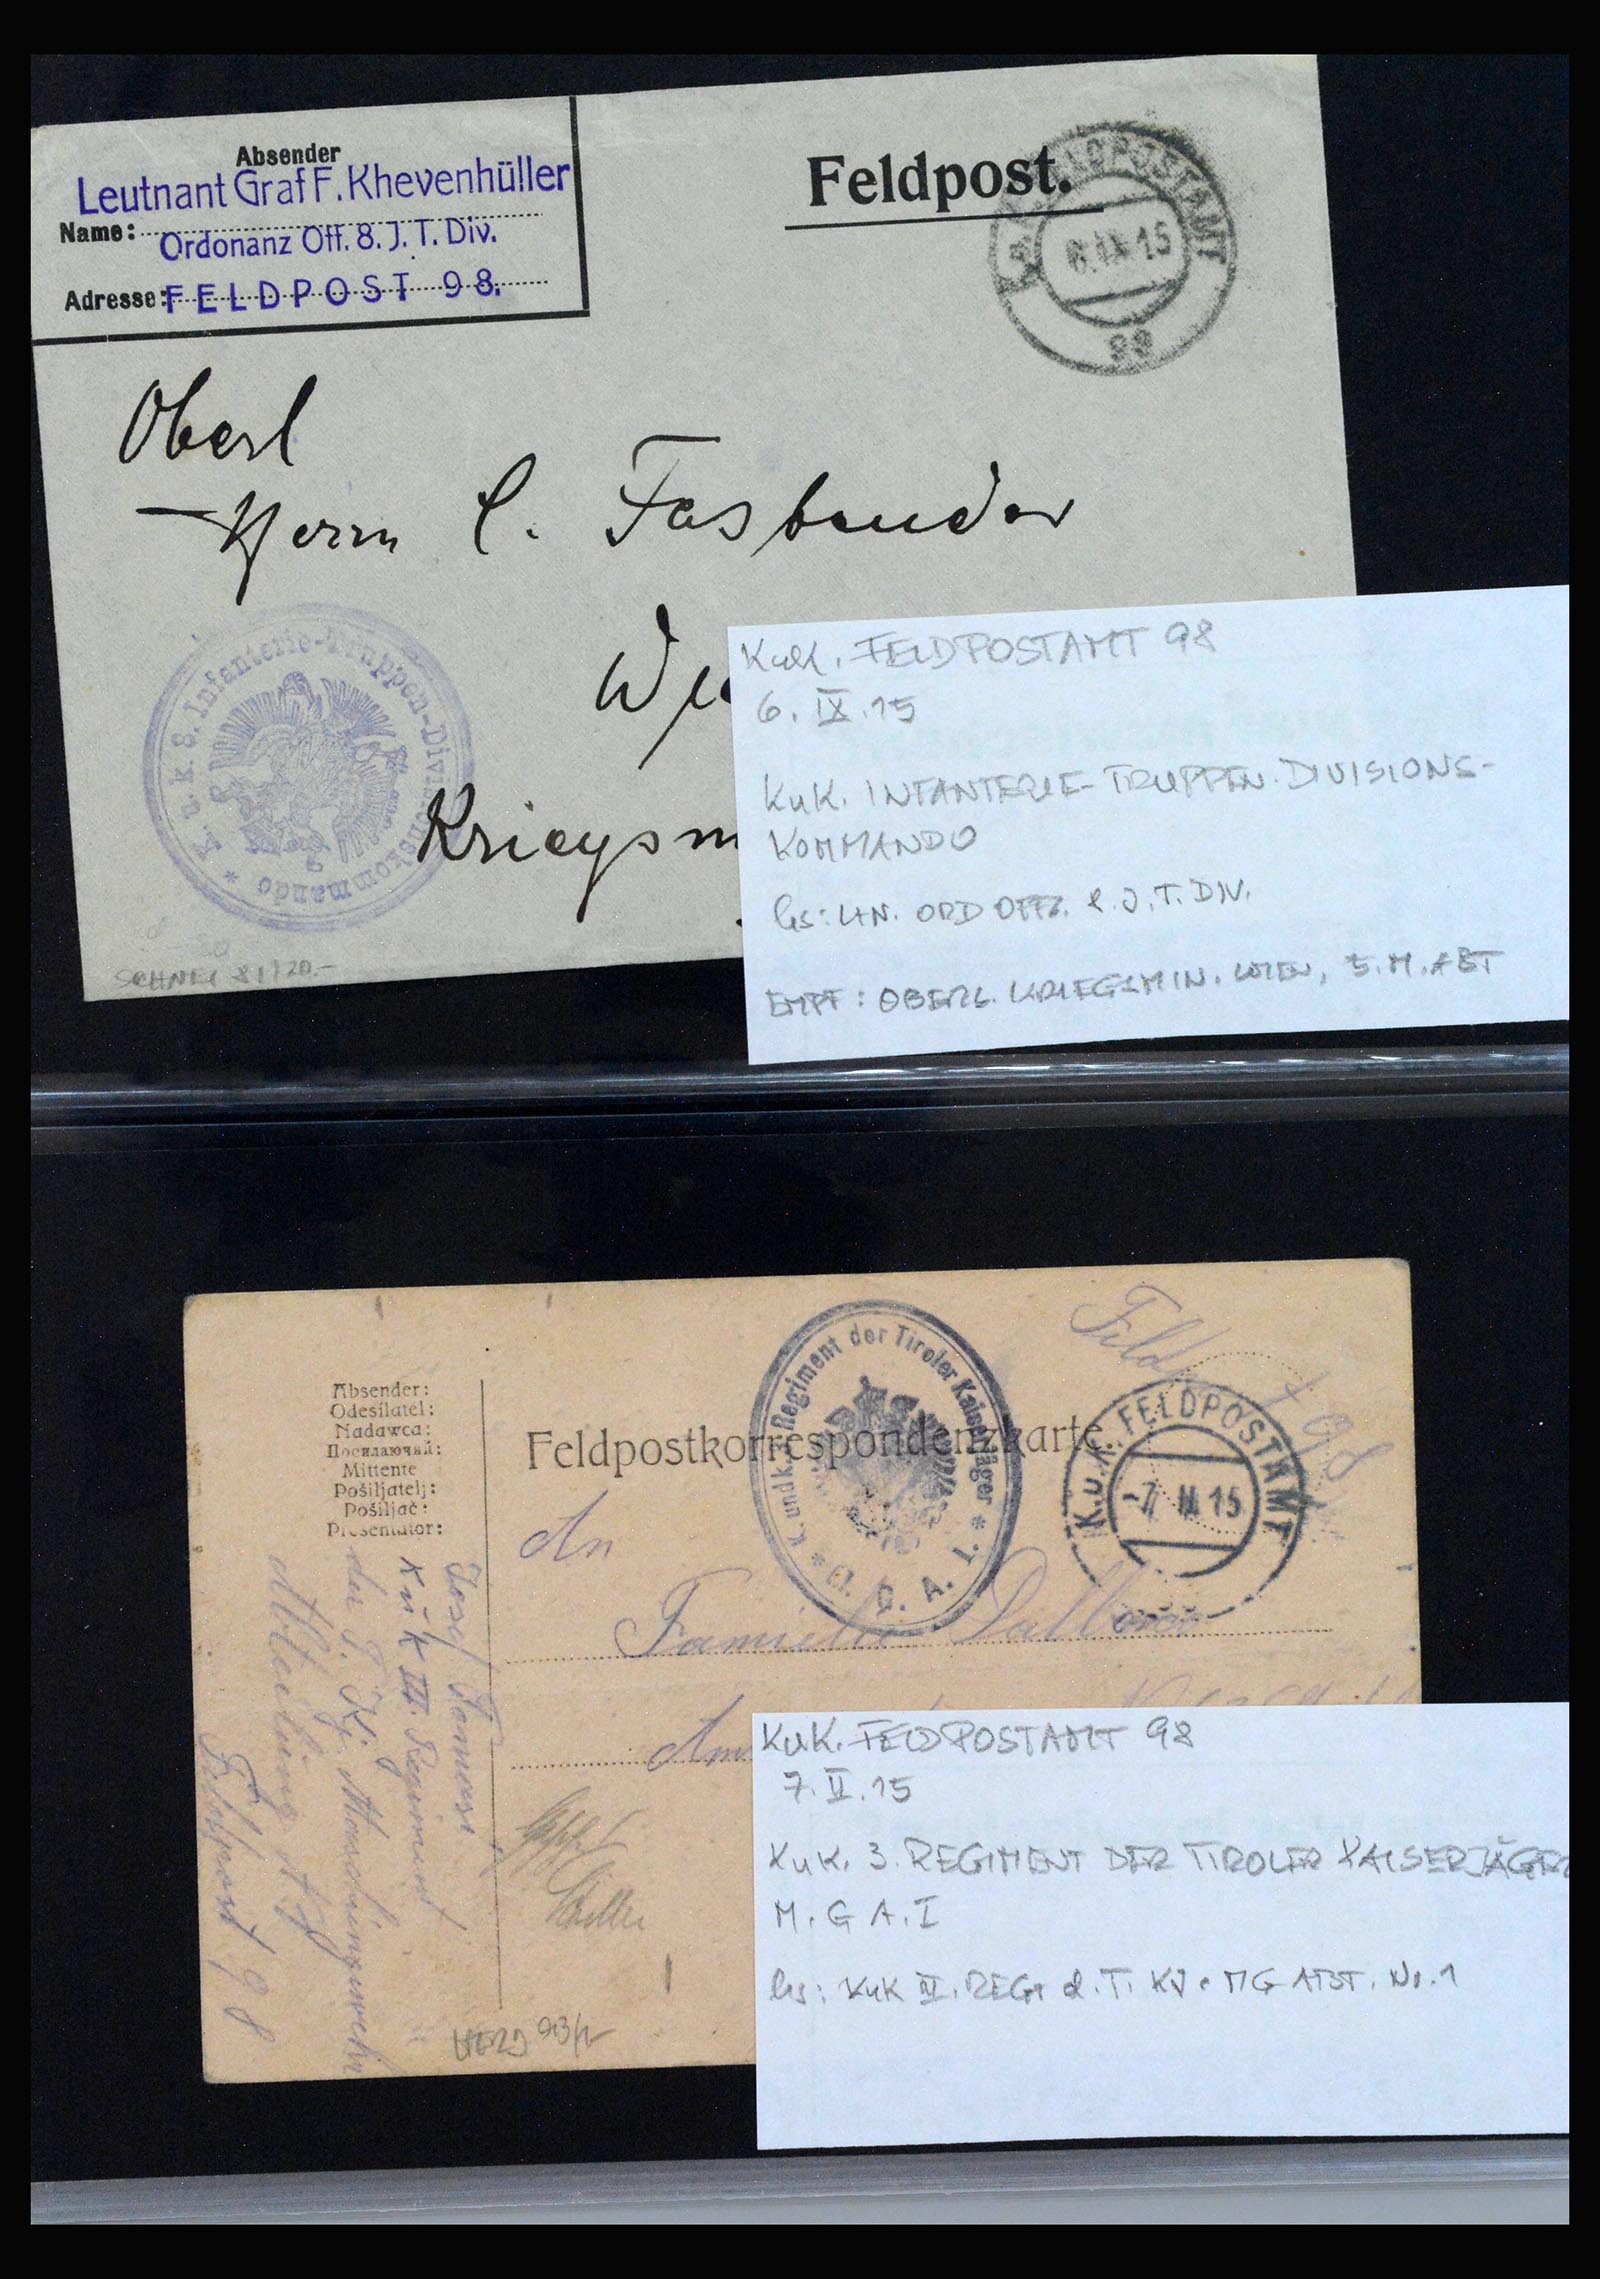 Absender
Leutnant Graf F. Khevenhüller
Name:
Ordonanz Off. 8. J. T. Div.
Adresse: FELDPOST 98.
Feldpost.
K.u.K. FELDPOSTAMT
6.IX.15
98
Oberl
Herrn C. Fasbender
K. u. k. 8. Infanterie-Truppen-Divisionskommando *
KuK. FELDPOSTAMT 98
6. IX. 15
KuK. INFANTERIE-TRUPPEN-DIVISIONS-
KOMMANDO
EMPF: OBERL. KRIEGSMIN. WIEN, 5. M. ABT
Absender:
Odesílatel:
Nadawca:
Mittente
Pošiljatelj:
Pošiljač:
Presentator:
Feldpostkorrespondenzkarte.
K. und k. 3. Regiment der Tiroler Kaiserjäger *
M. G. A. I.
K.u.K. FELDPOSTAMT
-7 II 15
An
Familie
Josef
K u K III. Regiment
der T. K. J.
Abteilung
Feldpost 98
KuK. FELDPOSTAMT 98
7. II. 15
KuK. 3. REGIMENT DER TIROLER KAISERJÄGER
M. G A. I
KuK III. REGT d. T. KJ. MG ABT. Nr. 1